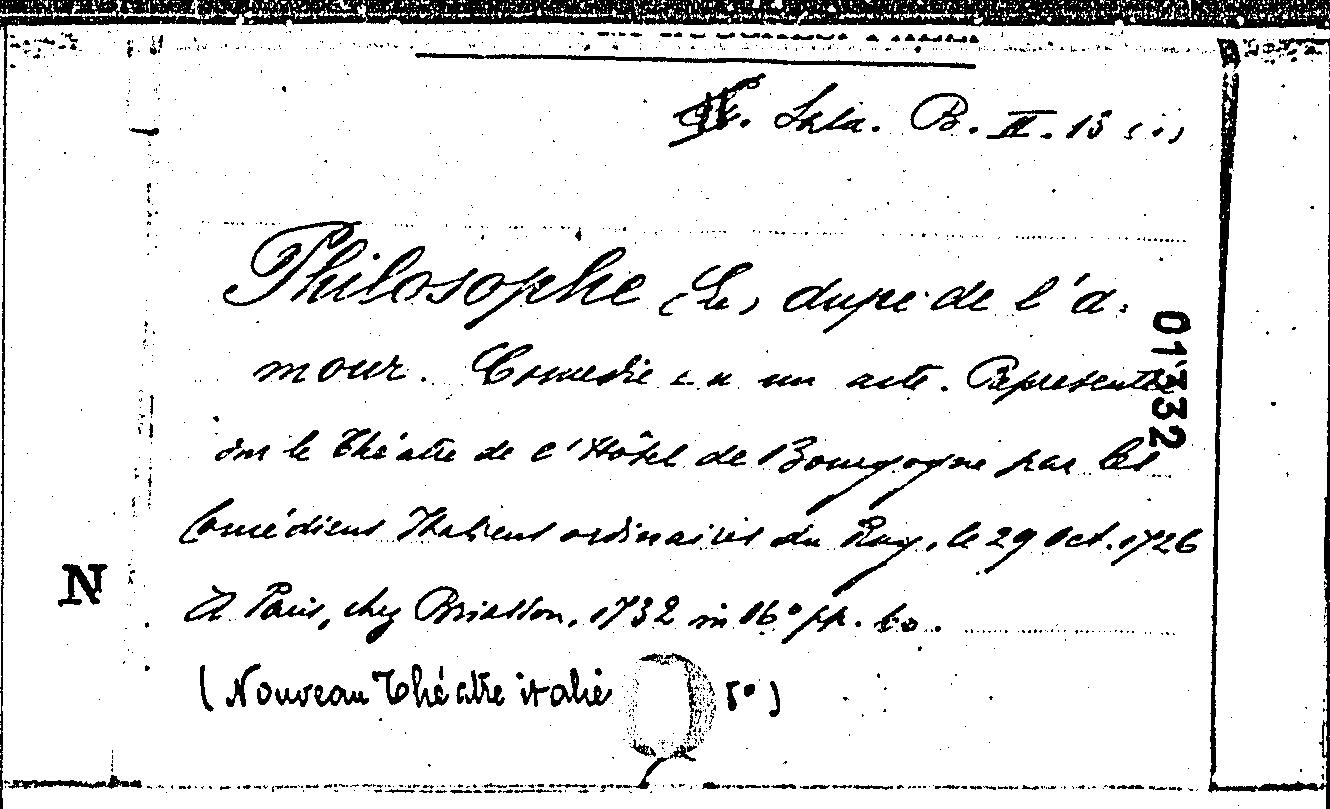 Sala. B. II. 13 (5)
Philosophe (Le) dupe de l'a-
mour. Comedie en un acte. Representée
sur le Théatre de l'Hôtel de Bourgogne par les
Comédiens Italiens ordinaires du Roy, le 29 Oct. 1726
A Paris, chez Briasson, 1732 in 16° pp. 60.
(Nouveau Théatre italie 5°)
N
01332